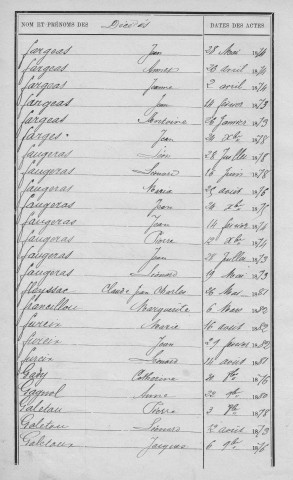 NOM ET PRÉNOMS DES Décédés DATES DES ACTES
fargeas Jean 28 Mars 1874
fargeas 20 avril 1874
fargeas 2 avril 1874
fargeas Jean février 1873
fargeas Antoine 26 Janvier 1873
farges Jean Xbre 1878
faugeras Léon 28 Juillet 1878
faugeras Léonard 16 juin 1878
faugeras Maria 25 août 1876
faugeras Jean 24 Xbre 1875
faugeras Jean 14 février 1874
faugeras Pierre Xbre 1874
faugeras Jean 28 Juillet 1873
faugeras Léonard 19 Mai 1873
feyssac Claude Jean Charles 26 Mai 1881
francillou Marguerite 6 Mars 1880
fureix Marie 16 août 1882
fureix Jean 29 février 1880
fureix Léonard 14 août 1881
Gady Catherine 1876
Gagnol Anne 1880
Galetou Pierre 3 1878
Galetou Léonard 2 août 1873
Galetoux Jacques 6 9bre 1876